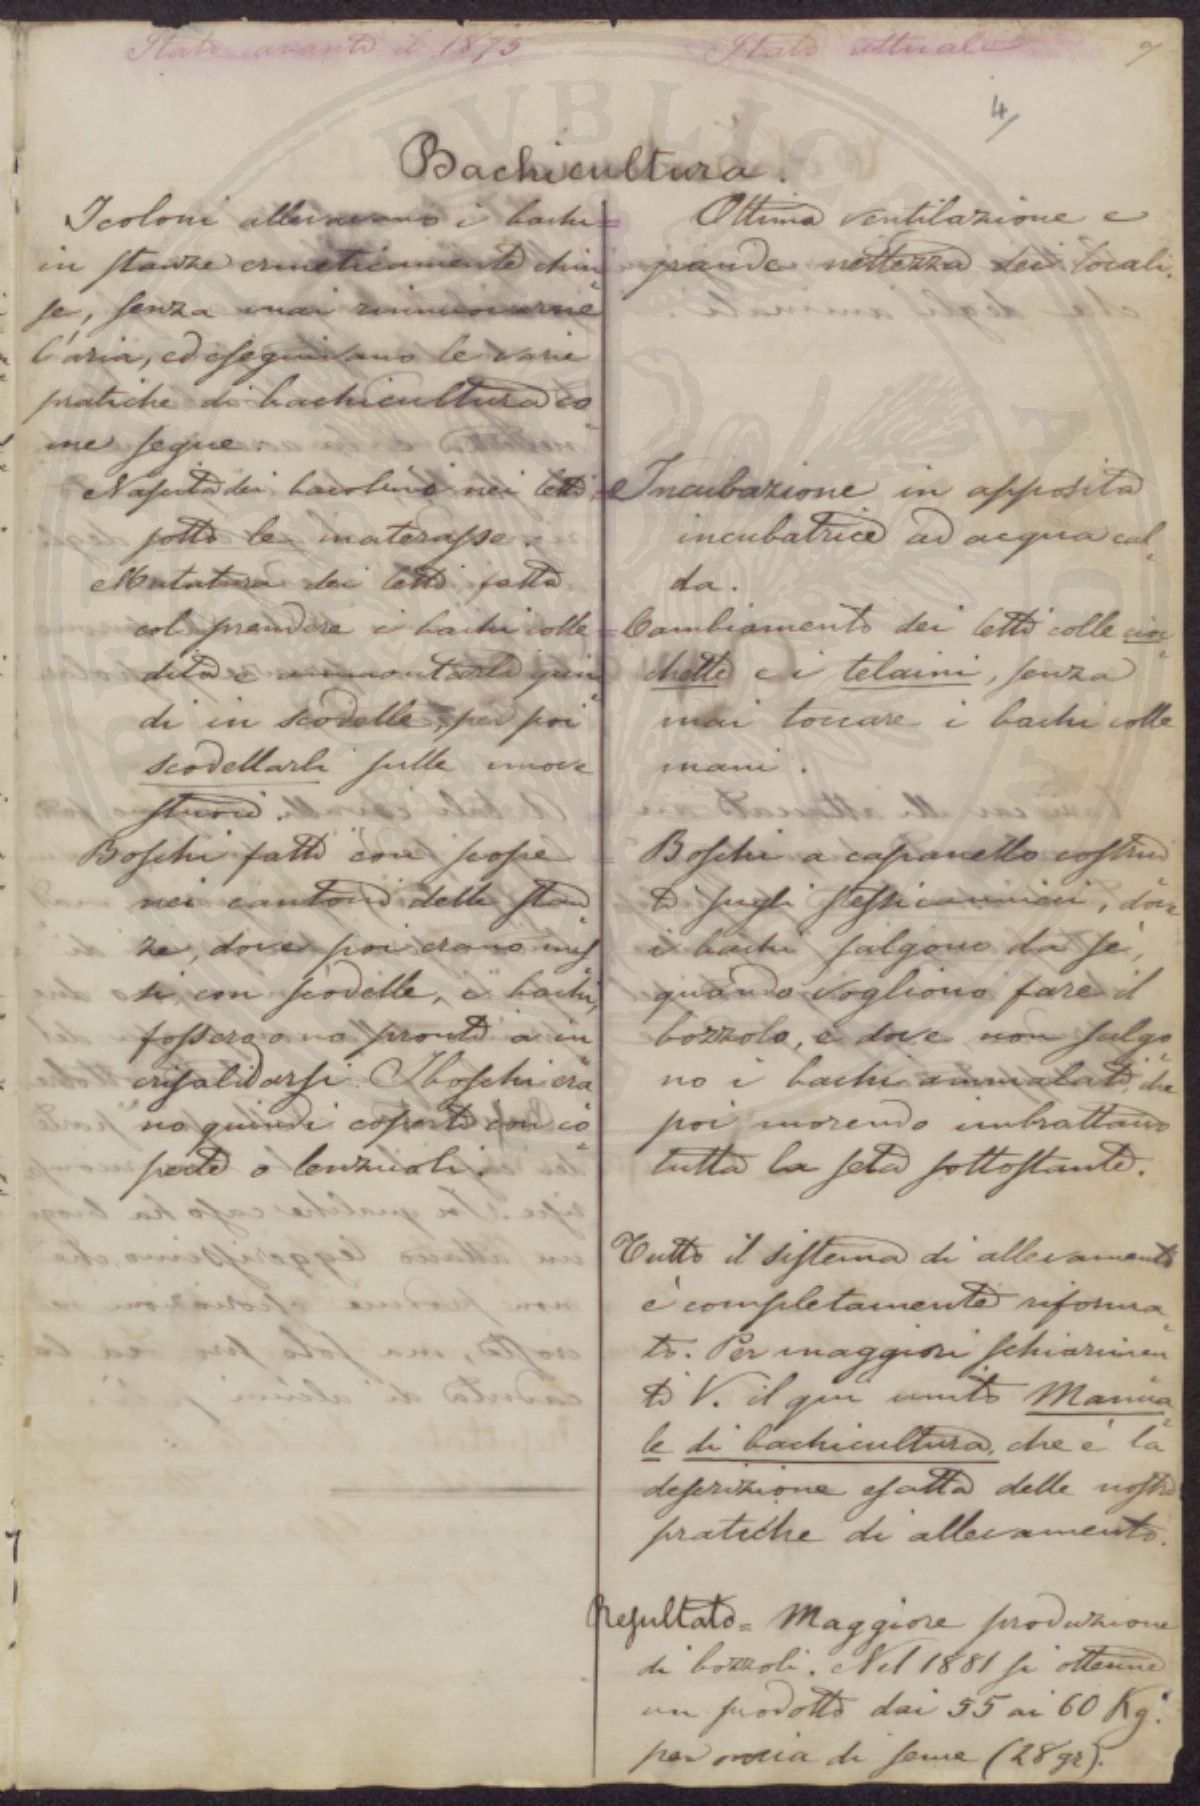 Stato avanti il 1875
Stato attuale
4/
Bachicultura.
I coloni allevavano i bachi
in stanze ermeticamente chiu=
se, senza mai rinnuovarne
l'aria, ed eseguivano le varie
pratiche di bachicultura co=
me segue.
Nascita dei bacolini nei letti
sotto le materasse.
Mutatura dei letti fatta
col prendere i bachi colle
dita e ammontarli quin=
di in scodelle, per poi
scodellarli sulle nuove
stuoie.
Boschi fatti con scope
nei cantoni delle stan=
ze, dove poi erano mes=
si, con scodelle, i bachi,
fossero o no pronti a in=
crisalidarsi. I boschi era=
no quindi coperti con co=
perte o lenzuoli.
Ottima ventilazione e
grande nettezza dei locali.
Incubazione in apposita
incubatrice ad acqua cal=
da.
Cambiamento dei letti colle
e i telaini, senza
mai toccare i bachi colle
mani.
Boschi a capanello costrui=
ti sugli stessi cannicci, dove
i bachi salgono da sé,
quando vogliono fare il
bozzolo, e dove non salgo=
no i bachi ammalati, che
poi morendo imbrattano
tutta la seta sottostante.
Tutto il sistema di allevamento
è completamente riforma=
to. Per maggiori schiarimen=
ti V. il qui unito Manua=
le di bachicultura, che è la
descrizione esatta delle nostre
pratiche di allevamento.
Resultato= Maggiore produzione
di bozzoli. Nel 1881 si ottenne
un prodotto dai 55 ai 60 Kg.
per oncia di seme (28 gr).